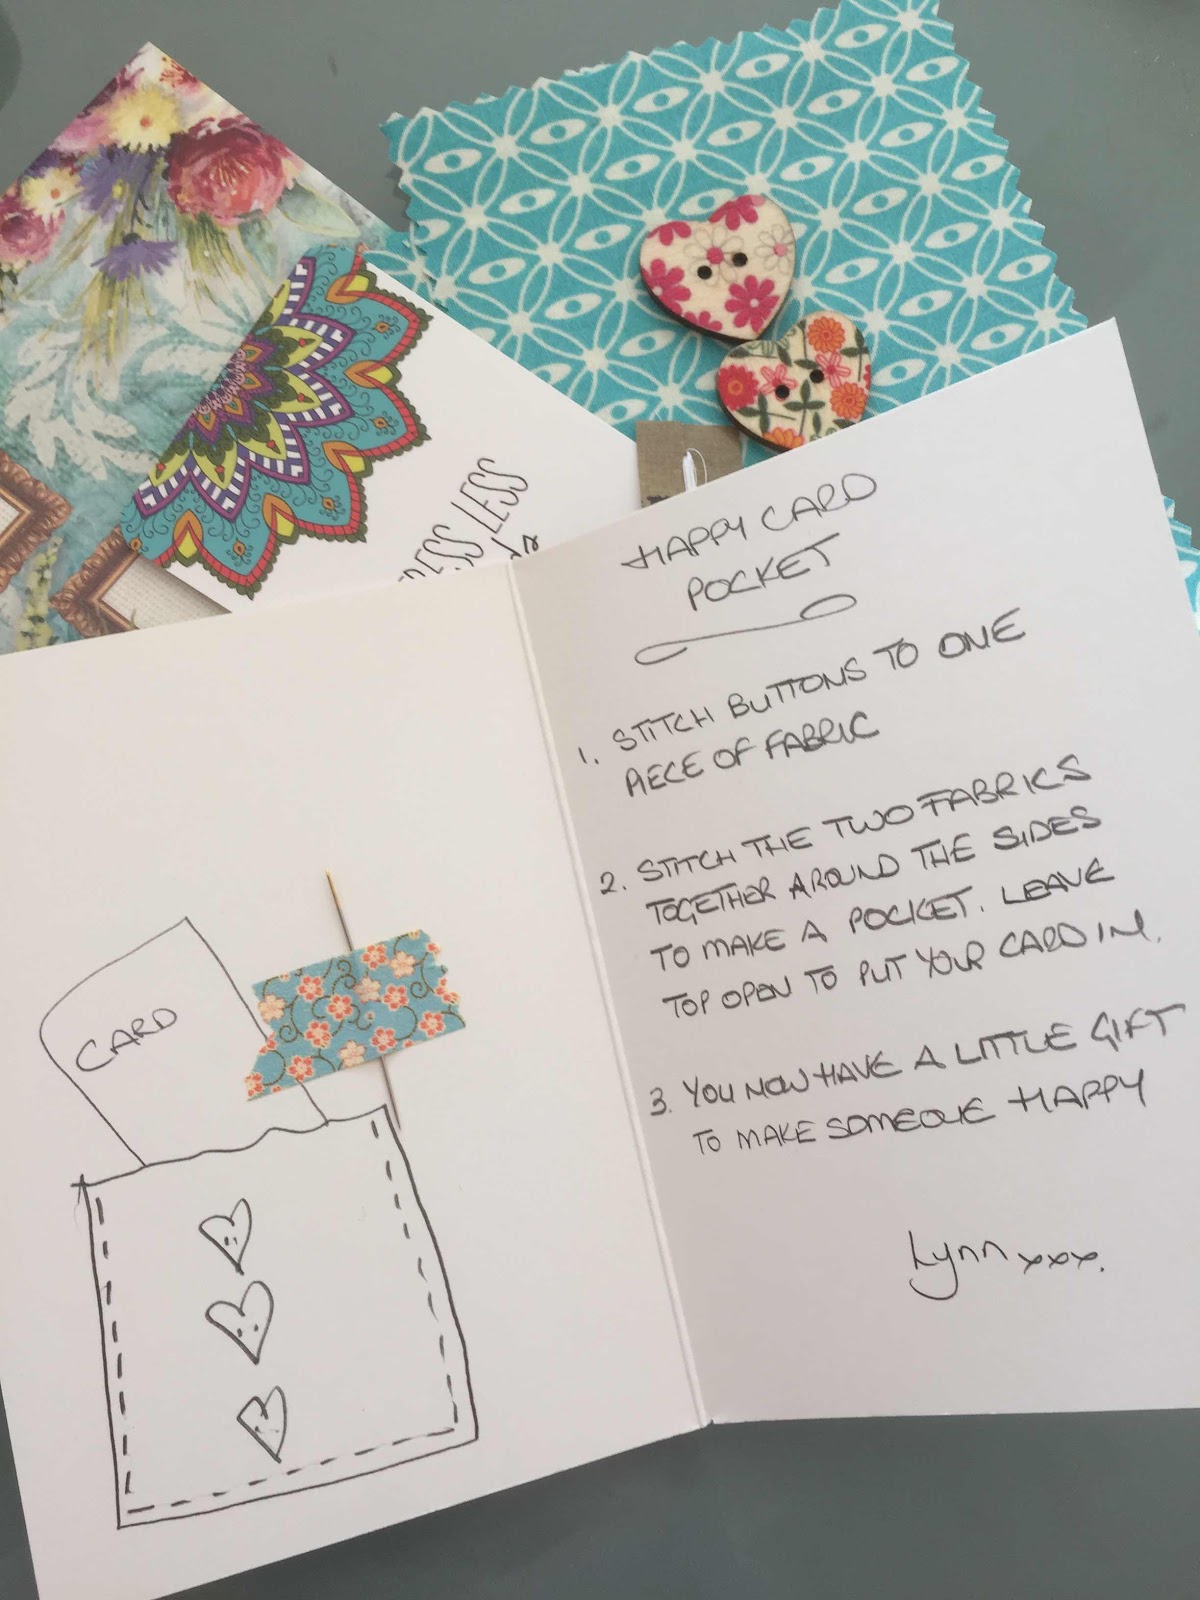 ESS LESS
CARD
HAPPY CARD
POCKET
1. STITCH BUTTONS TO ONE
PIECE OF FABRIC
2. STITCH THE TWO FABRICS
TOGETHER AROUND THE SIDES
TO MAKE A POCKET. LEAVE
TOP OPEN TO PUT YOUR CARD IN.
3. YOU NOW HAVE A LITTLE GIFT
TO MAKE SOMEONE HAPPY
Lynn xxx.